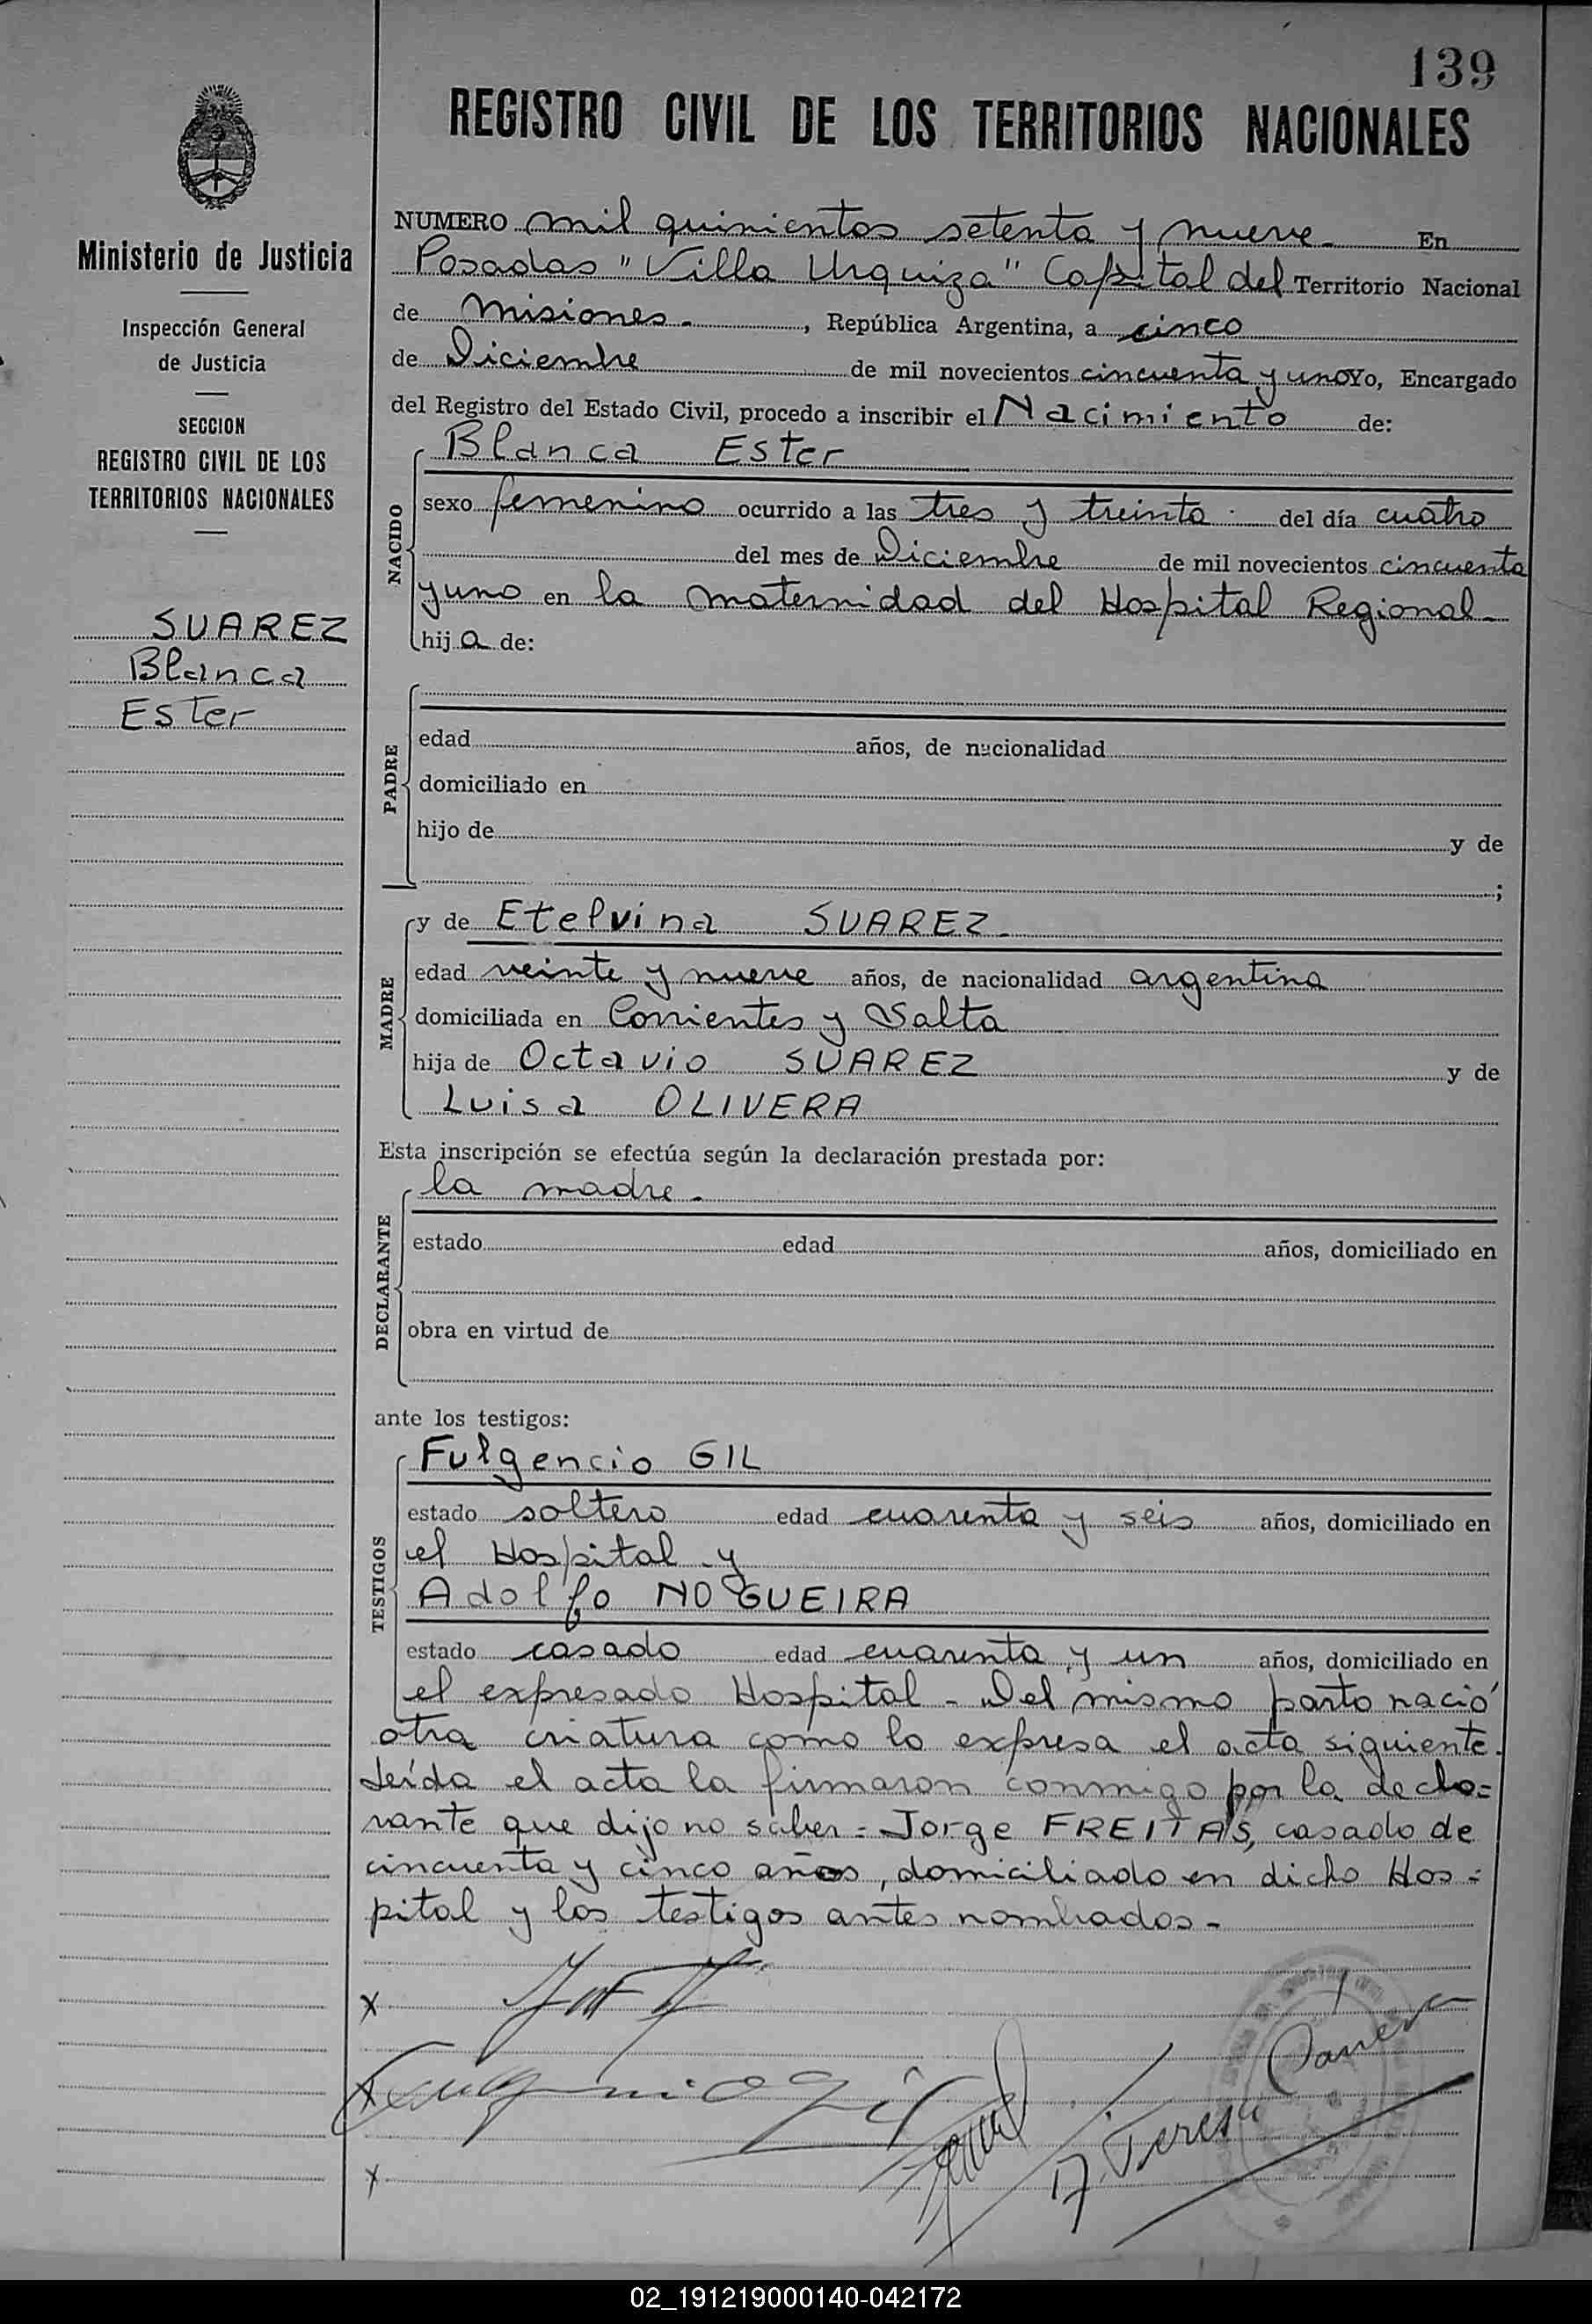 139
REGISTRO CIVIL DE LOS TERRITORIOS NACIONALES
Ministerio de Justicia
Inspección General
de Justicia
SECCION
REGISTRO CIVIL DE LOS
TERRITORIOS NACIONALES
SUAREZ
Blanca
Ester
NUMERO mil quinientos setenta y nueve. En
Posadas "Villa Urquiza" Capital del Territorio Nacional
de Misiones. , República Argentina, a cinco
de Diciembre de mil novecientos cincuenta y uno Yo, Encargado
del Registro del Estado Civil, procedo a inscribir el Nacimiento de:
Blanca Ester
NACIDO
sexo femenino ocurrido a las tres y treinta del día cuatro
del mes de Diciembre de mil novecientos cincuenta
y uno en la maternidad del Hospital Regional.
hija de:
PADRE
edad años, de nacionalidad
domiciliado en
hijo de y de
;
MADRE
y de Etelvina SUAREZ.
edad veinte y nueve años, de nacionalidad argentina
domiciliada en Corrientes y Salta
hija de Octavio SUAREZ y de
Luisa OLIVERA
Esta inscripción se efectúa según la declaración prestada por:
la madre.
DECLARANTE
estado edad años, domiciliado en
obra en virtud de
ante los testigos:
TESTIGOS
Fulgencio GIL
estado soltero edad cuarenta y seis años, domiciliado en
el Hospital y
Adolfo NOGUEIRA
estado casado edad cuarenta y un años, domiciliado en
el expresado Hospital - Del mismo parto nació
otra criatura como lo expresa el acta siguiente.
Leída el acta la firmaron conmigo por la decla=
rante que dijo no saber = Jorge FREITAS, casado de
cincuenta y cinco años, domiciliado en dicho Hos=
pital y los testigos antes nombrados -
x
x
x
02_191219000140-042172